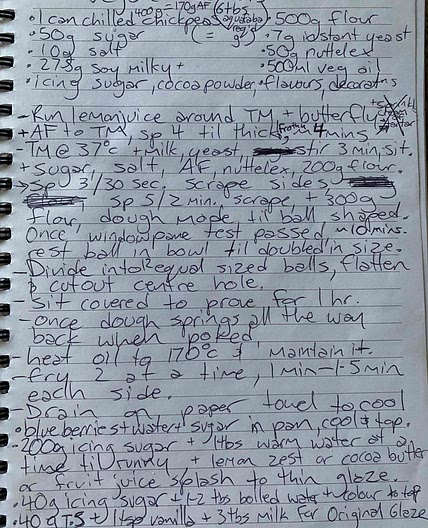 400g = 170g AF (6tbs
• 1 can chilled chickpeas aquafaba • 500g flour
• 50g sugar (= req'd • 7g instant yeast
• 10g salt • 50g nuttelex
• 275g soy milky+ • 500ml veg oil
• icing sugar, cocoa powder, flavours, decorations
- Run lemon juice around TM + butterfly
+ AF to TM, sp 4 til thick, 4 mins
- TM @ 37°c + milk, yeast, stir 3 min, sit.
+ sugar, salt, AF, nuttelex, 200g flour.
→ sp 3/30 sec. scrape sides
sp 5/2 min. scrape + 300g
flour, dough mode til ball shaped.
Once windowpane test passed ~10mins.
rest ball in bowl til doubled in size.
- Divide into 12 equal sized balls, flatten
& cutout centre hole.
- Sit covered to prove for 1 hr.
- once dough springs all the way
back when poked,
- heat oil to 170°c & maintain it.
- fry 2 at a time, 1 min-1-5 min
each side.
- Drain on paper towel to cool
• blueberries + water + sugar in pan, cool & top.
• 200g icing sugar + 14tbs warm water at a
time til runny + lemon zest or cocoa butter
or fruit juice splash to thin glaze.
• 40g icing sugar + 1-2 tbs boiled water + colour to top
• 40g + 1 tsp vanilla + 3tbs milk For Original Glaze